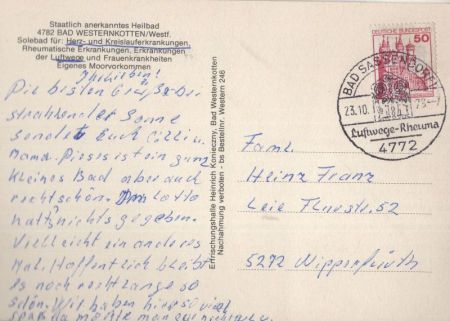 Staatlich anerkanntes Heilbad
4782 BAD WESTERNKOTTEN/Westf.
Solebad für: Herz- und Kreislauferkrankungen,
Rheumatische Erkrankungen, Erkrankungen
der Luftwege und Frauenkrankheiten
Eigenes Moorvorkommen
Ihr Lieben!
Die besten Grüße bei
strahlender Sonne
sendet Euch Cilli u.
Mama. Dieses ist ein zum
kleines Bad aber auch
recht schön. Im Lotto
hat's nichts gegeben.
Vielleicht ein anderes
Mal. Hoffentlich bleibt
es noch recht lange so
schön. Wir haben hier so viel
Spaß da möchte man gar nicht
Erfrischungshalle Heinrich Konieczny, Bad Westernkotten
Nachahmung verboten - bs Bestellnr. Western 246
DEUTSCHE BUNDESPOST
50
BAD SASSENDORF
23.10.
Luftwege-Rheuma
4772
Fam.
Heinz Franz
Leie 52
5272 Wipperfürth